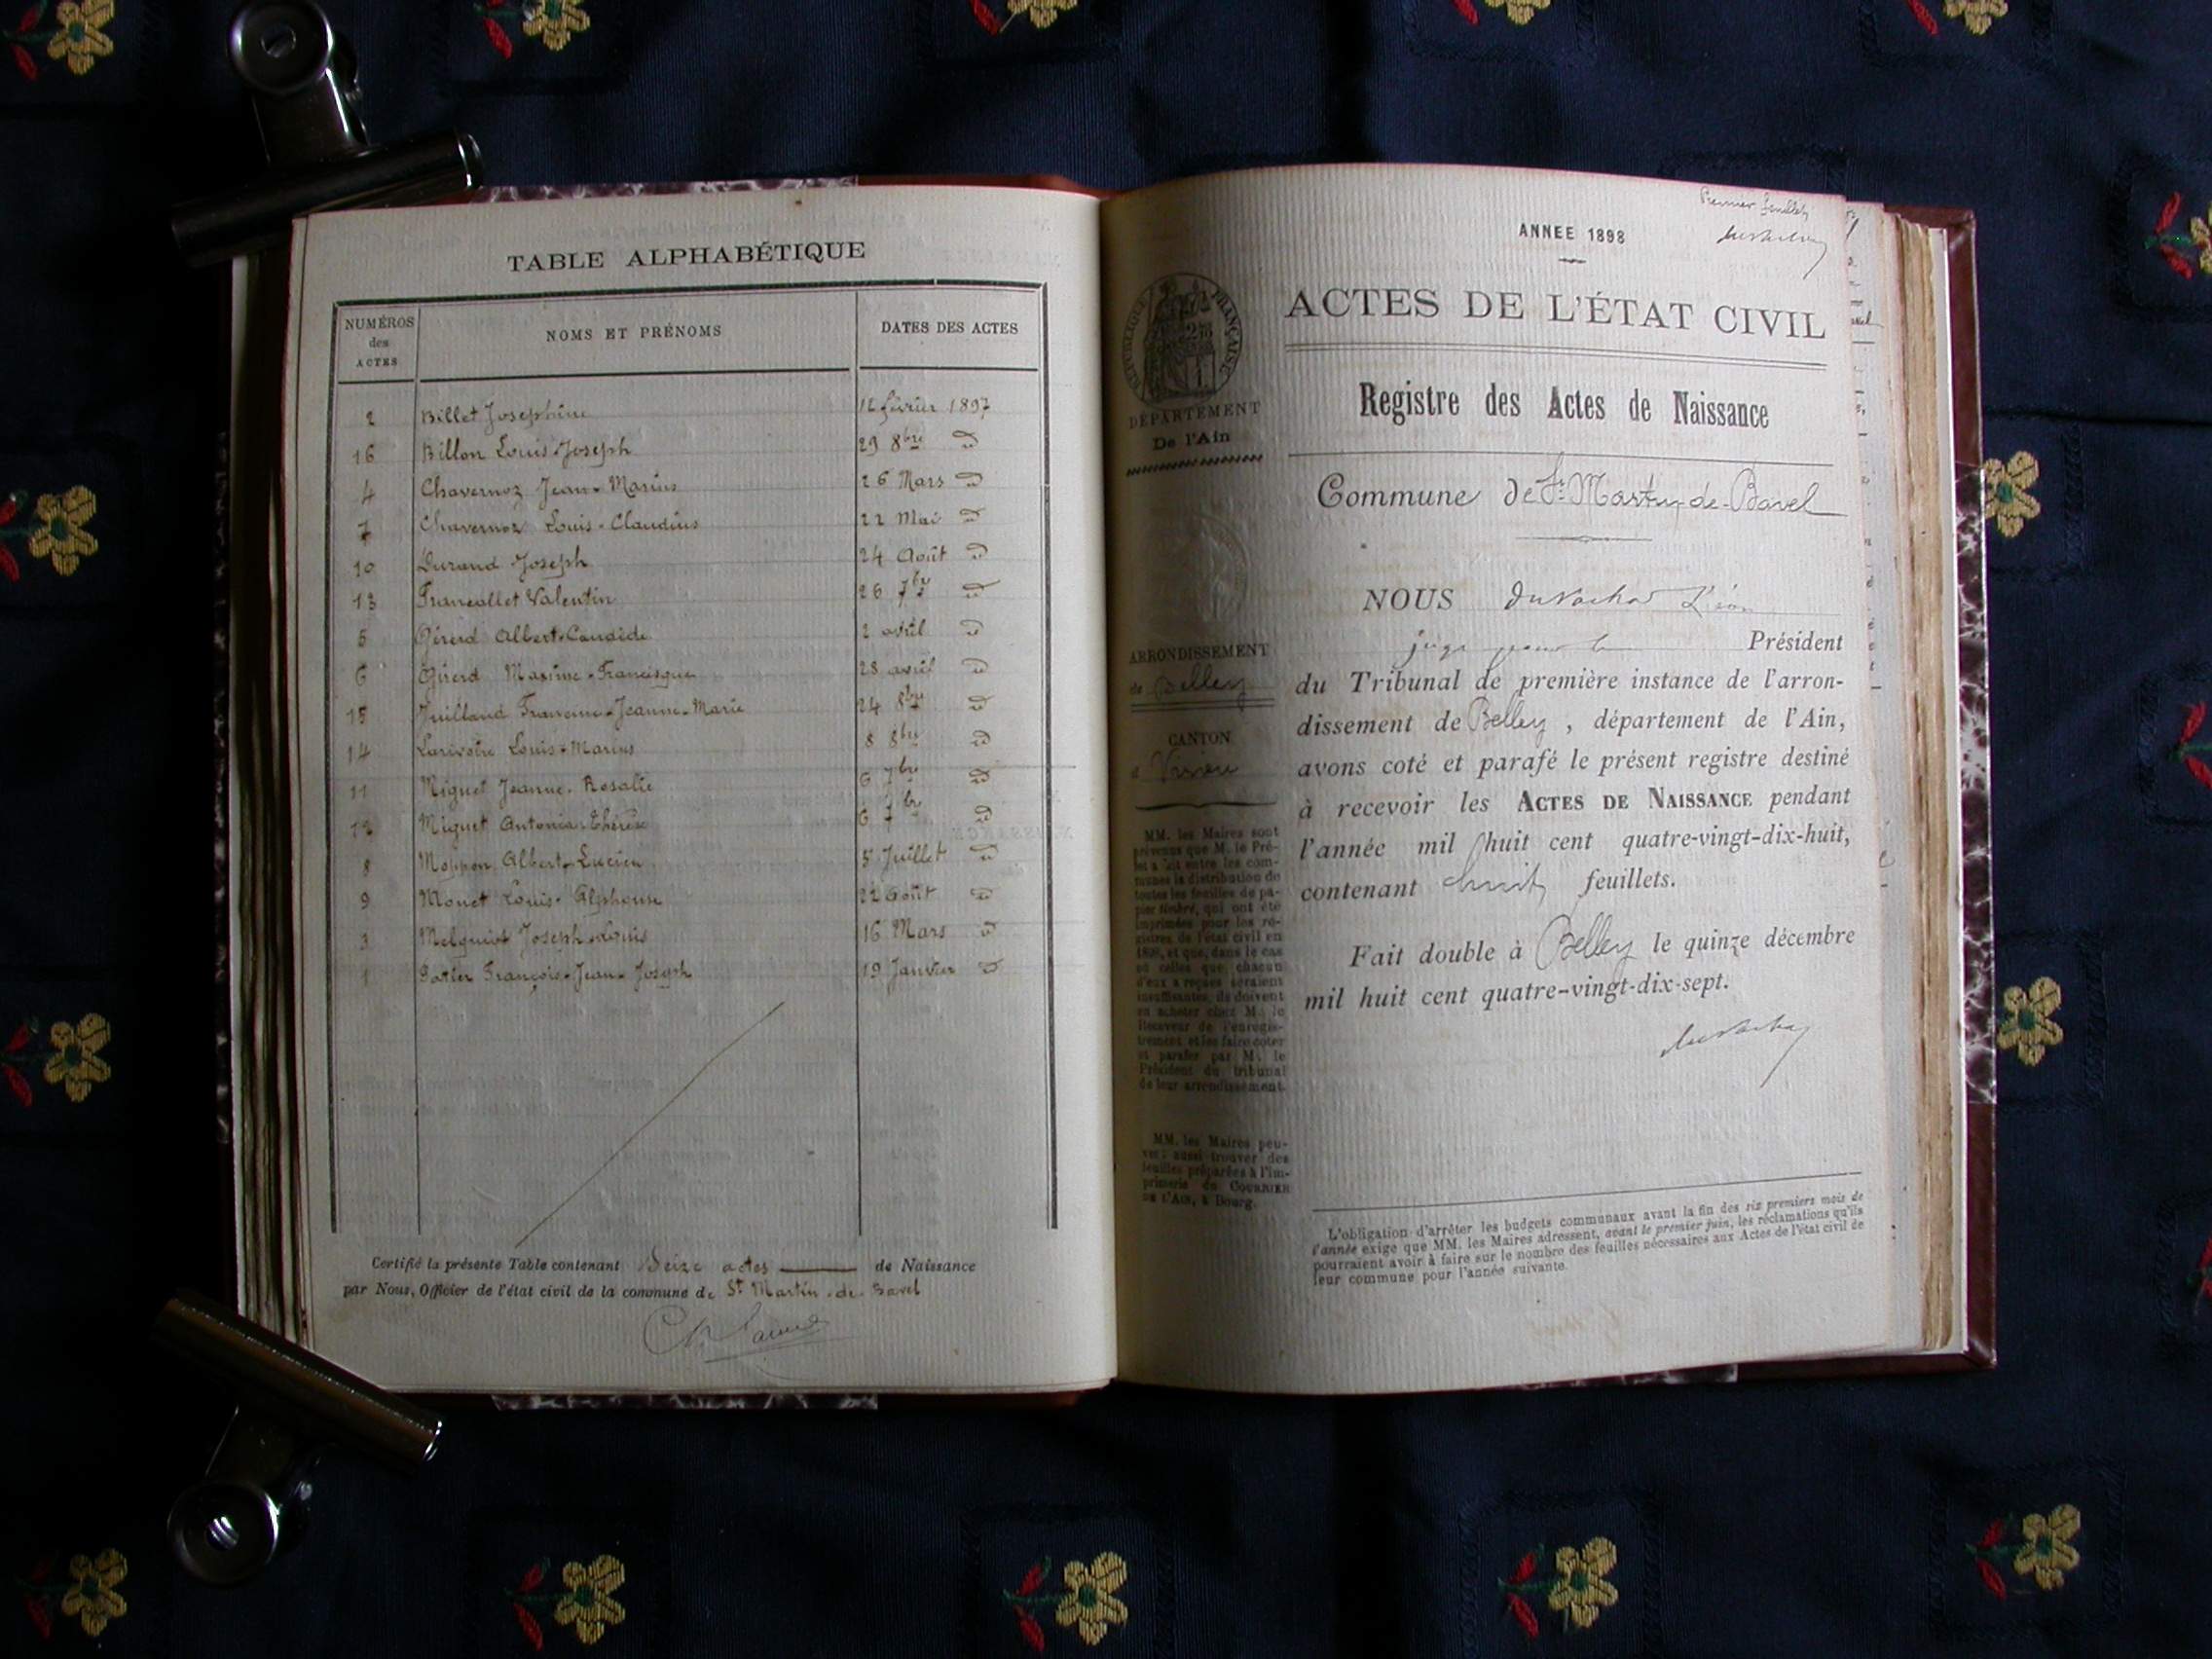 TABLE ALPHABÉTIQUE
NUMÉROS des ACTES NOMS ET PRÉNOMS DATES DES ACTES
2 Billet Joséphine 12 février 1897
16 Billon Louis-Joseph 29 8bre d°
4 Chavernoz Jean-Marius 26 Mars d°
7 Chavernoz Louis-Claudius 22 Mai d°
10 Durand Joseph 24 Août d°
13 Francallet Valentin 26 7bre d°
5 Girerd Albert-Candide 2 avril d°
6 Girerd Maxime-Francisque 28 avril d°
15 Juilland Francine-Jeanne-Marie 24 8bre d°
14 Larivoire Louis-Marius 8 8bre d°
11 Miguet Jeanne-Rosalie 6 7bre d°
12 Miguet Antonia-Thérèse 6 7bre d°
8 Albert-Lucien 5 Juillet d°
9 Monet Louis-Alphonse 22 Août d°
3 Joseph-Louis 16 Mars d°
1 François-Jean-Joseph 19 Janvier d°
Certifié la présente Table contenant Seize actes de Naissance
par Nous, Officier de l'état civil de la commune de St Martin-de-Bavel
Premier feuillet
ANNEE 1898
ACTES DE L'ÉTAT CIVIL
Registre des Actes de Naissance
Commune de St Martin-de-Bavel
RÉPUBLIQUE FRANÇAISE
DÉPARTEMENT
De l'Ain
ARRONDISSEMENT
de Belley
CANTON
d Virieu
MM. les Maires sont
prévenus que M. le Pré-
fet a fait entre les com-
munes la distribution de
toutes les feuilles de pa-
pier timbré, qui ont été
imprimées pour les re-
gistres de l'état civil en
1898, et que, dans le cas
où celles que chacun
d'eux a reçues seraient
insuffisantes, ils doivent
en acheter chez M. le
Receveur de l'enregis-
trement et les faire coter
et parafer par M. le
Président du tribunal
de leur arrondissement.
MM. les Maires peu-
vent aussi trouver des
feuilles préparées à l'im-
primerie du COURRIER
DE L'AIN, à Bourg.
NOUS Léon
juge pour le Président
du Tribunal de première instance de l'arron-
dissement de Belley, département de l'Ain,
avons coté et parafé le présent registre destiné
à recevoir les ACTES DE NAISSANCE pendant
l'année mil huit cent quatre-vingt-dix-huit,
contenant huit feuillets.
Fait double à Belley le quinze décembre
mil huit cent quatre-vingt-dix-sept.
L'obligation d'arrêter les budgets communaux avant la fin des six premiers mois de
l'année exige que MM. les Maires adressent, avant le premier juin, les réclamations qu'ils
pourraient avoir à faire sur le nombre des feuilles nécessaires aux Actes de l'état civil de
leur commune pour l'année suivante.